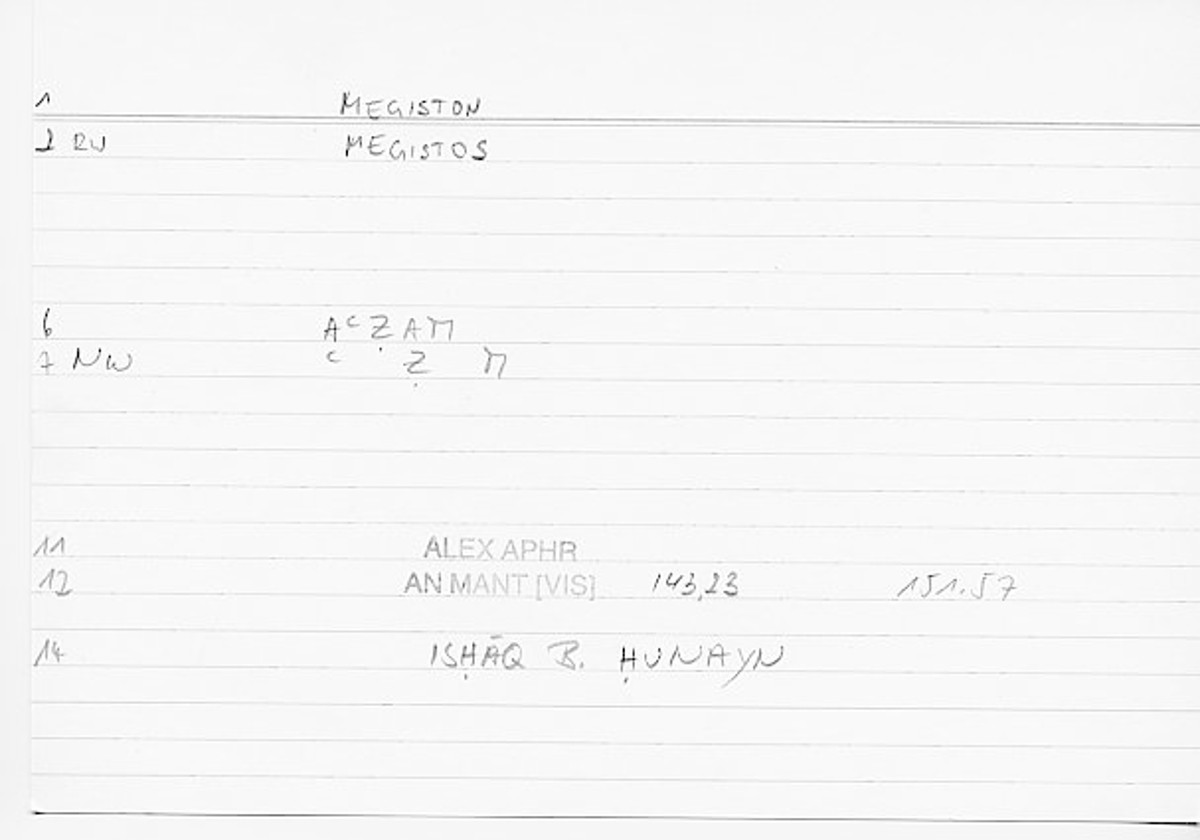 1 MEGISTON
2 RW MEGISTOS
6 AᶜẒAM
7 NW ᶜ Ẓ M
11 ALEX APHR
12 AN MANT [VIS] 143,23 151.57
14 ISḤĀQ B. ḤUNAYN